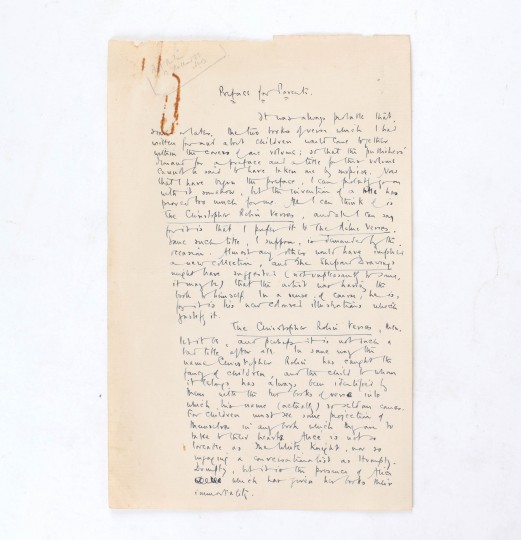 Preface for Parents.
It was always probable that,
sooner or later, the two books of verses which I had
written for and about children would come together
within the covers of one volume; so that the publishers'
demand for a preface and a title for this volume
cannot be said to have taken me by surprise. Now
that I have begun the preface, I can probably go on
with it somehow, but the invention of a title has
proved too much for me. All I can think of is
The Christopher Robin Verses, and all I can say
for it is that I prefer it to The Robin Verses.
Some such title, I suppose, is demanded by the
occasion. Almost any other would have implied
a new collection, and The Shepard Drawings
might have suggested (not unpleasantly to some,
it may be) that the artist was having the
book to himself. In a sense, of course, he is,
for it is his new coloured illustrations which
justify it.
The Christopher Robin Verses, then,
let it be, and perhaps it is not such a
bad title after all. In some way the
name Christopher Robin has caught the
fancy of children, and the child to whom
it belongs has always been identified by
them with the two books of verse into
which his name (actually) so seldom comes.
For children must see some projection of
themselves in any book which they are to
take to their hearts. Alice is not so
lovable as the White Knight, nor so
engaging a conversationalist as Humpty-
Dumpty, but it is the presence of Alice
which has given her books their
immortality.